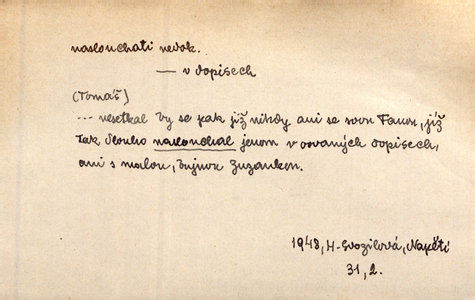 naslouchati nedok.
— v dopisech
(Tomáš)
... nesetkal by se pak již nikdy ani se svou Fanou, již
tak dlouho naslouchal jenom v ovaných dopisech,
ani s malou, bujnou Zuzankou.
1948, H. Gvozilová, Napětí
31, 2.